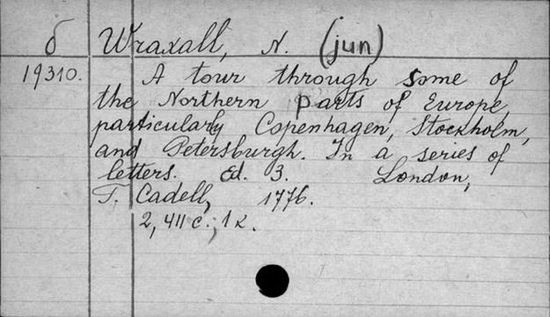 б Wraxall, N. (jun)
19310. A tour through some of
the Northern parts of Europe,
particularly Copenhagen, Stockholm,
and Petersburgh. In a series of
letters. Ed. 3. London,
T. Cadell, 1776.
2, 411 с.; 1 к.